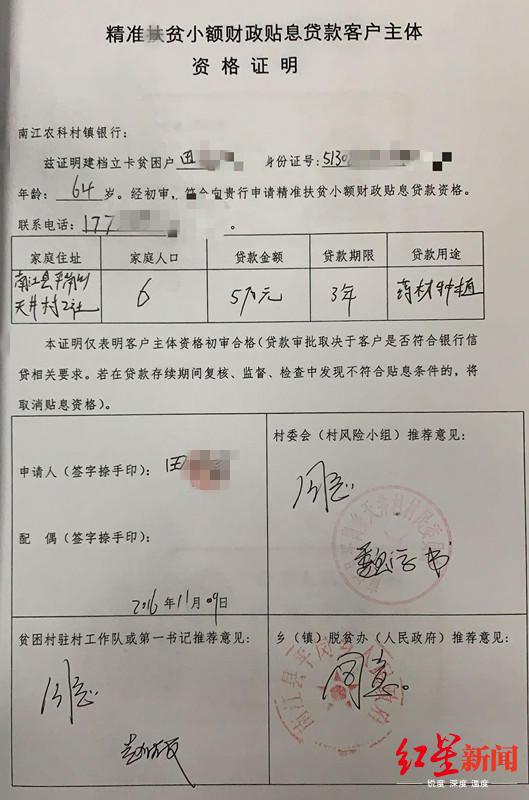 精准扶贫小额财政贴息贷款客户主体
资格证明
南江农科村镇银行：
兹证明建档立卡贫困户 田 身份证号：5130
年龄：64岁。经初审，符合向贵行申请精准扶贫小额财政贴息贷款资格。
联系电话：177 。
家庭住址 家庭人口 贷款金额 贷款期限 贷款用途
南江县平岗乡天井村2社 6 5万元 3年 药材种植
本证明仅表明客户主体资格初审合格（贷款审批取决于客户是否符合银行信
贷相关要求。若在贷款存续期间复核、监督、检查中发现不符合贴息条件的，将
取消贴息资格）。
申请人（签字捺手印）： 田
配 偶（签字捺手印）：
2016年11月09日
村委会（村风险小组）推荐意见：
同意
贫困村驻村工作队或第一书记推荐意见：
同意
乡（镇）脱贫办（人民政府）推荐意见：
同意。
南江县平岗乡人民政府
红星新闻
锐度 深度 温度